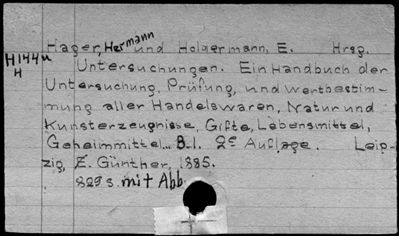 Hager, Hermann und Holdermann, E. Hrsg.
H144u
H
Untersuchungen. Ein Handbuch der
Untersuchung, Prüfung, und Wertbestim-
mung aller Handelswaren, Natur und
Kunsterzeugnisse, Gifte, Lebensmittel,
Geheimmittel... B.1. 2e Auflage. Leip-
zig, E. Günther, 1885.
829 s. mit Abb.